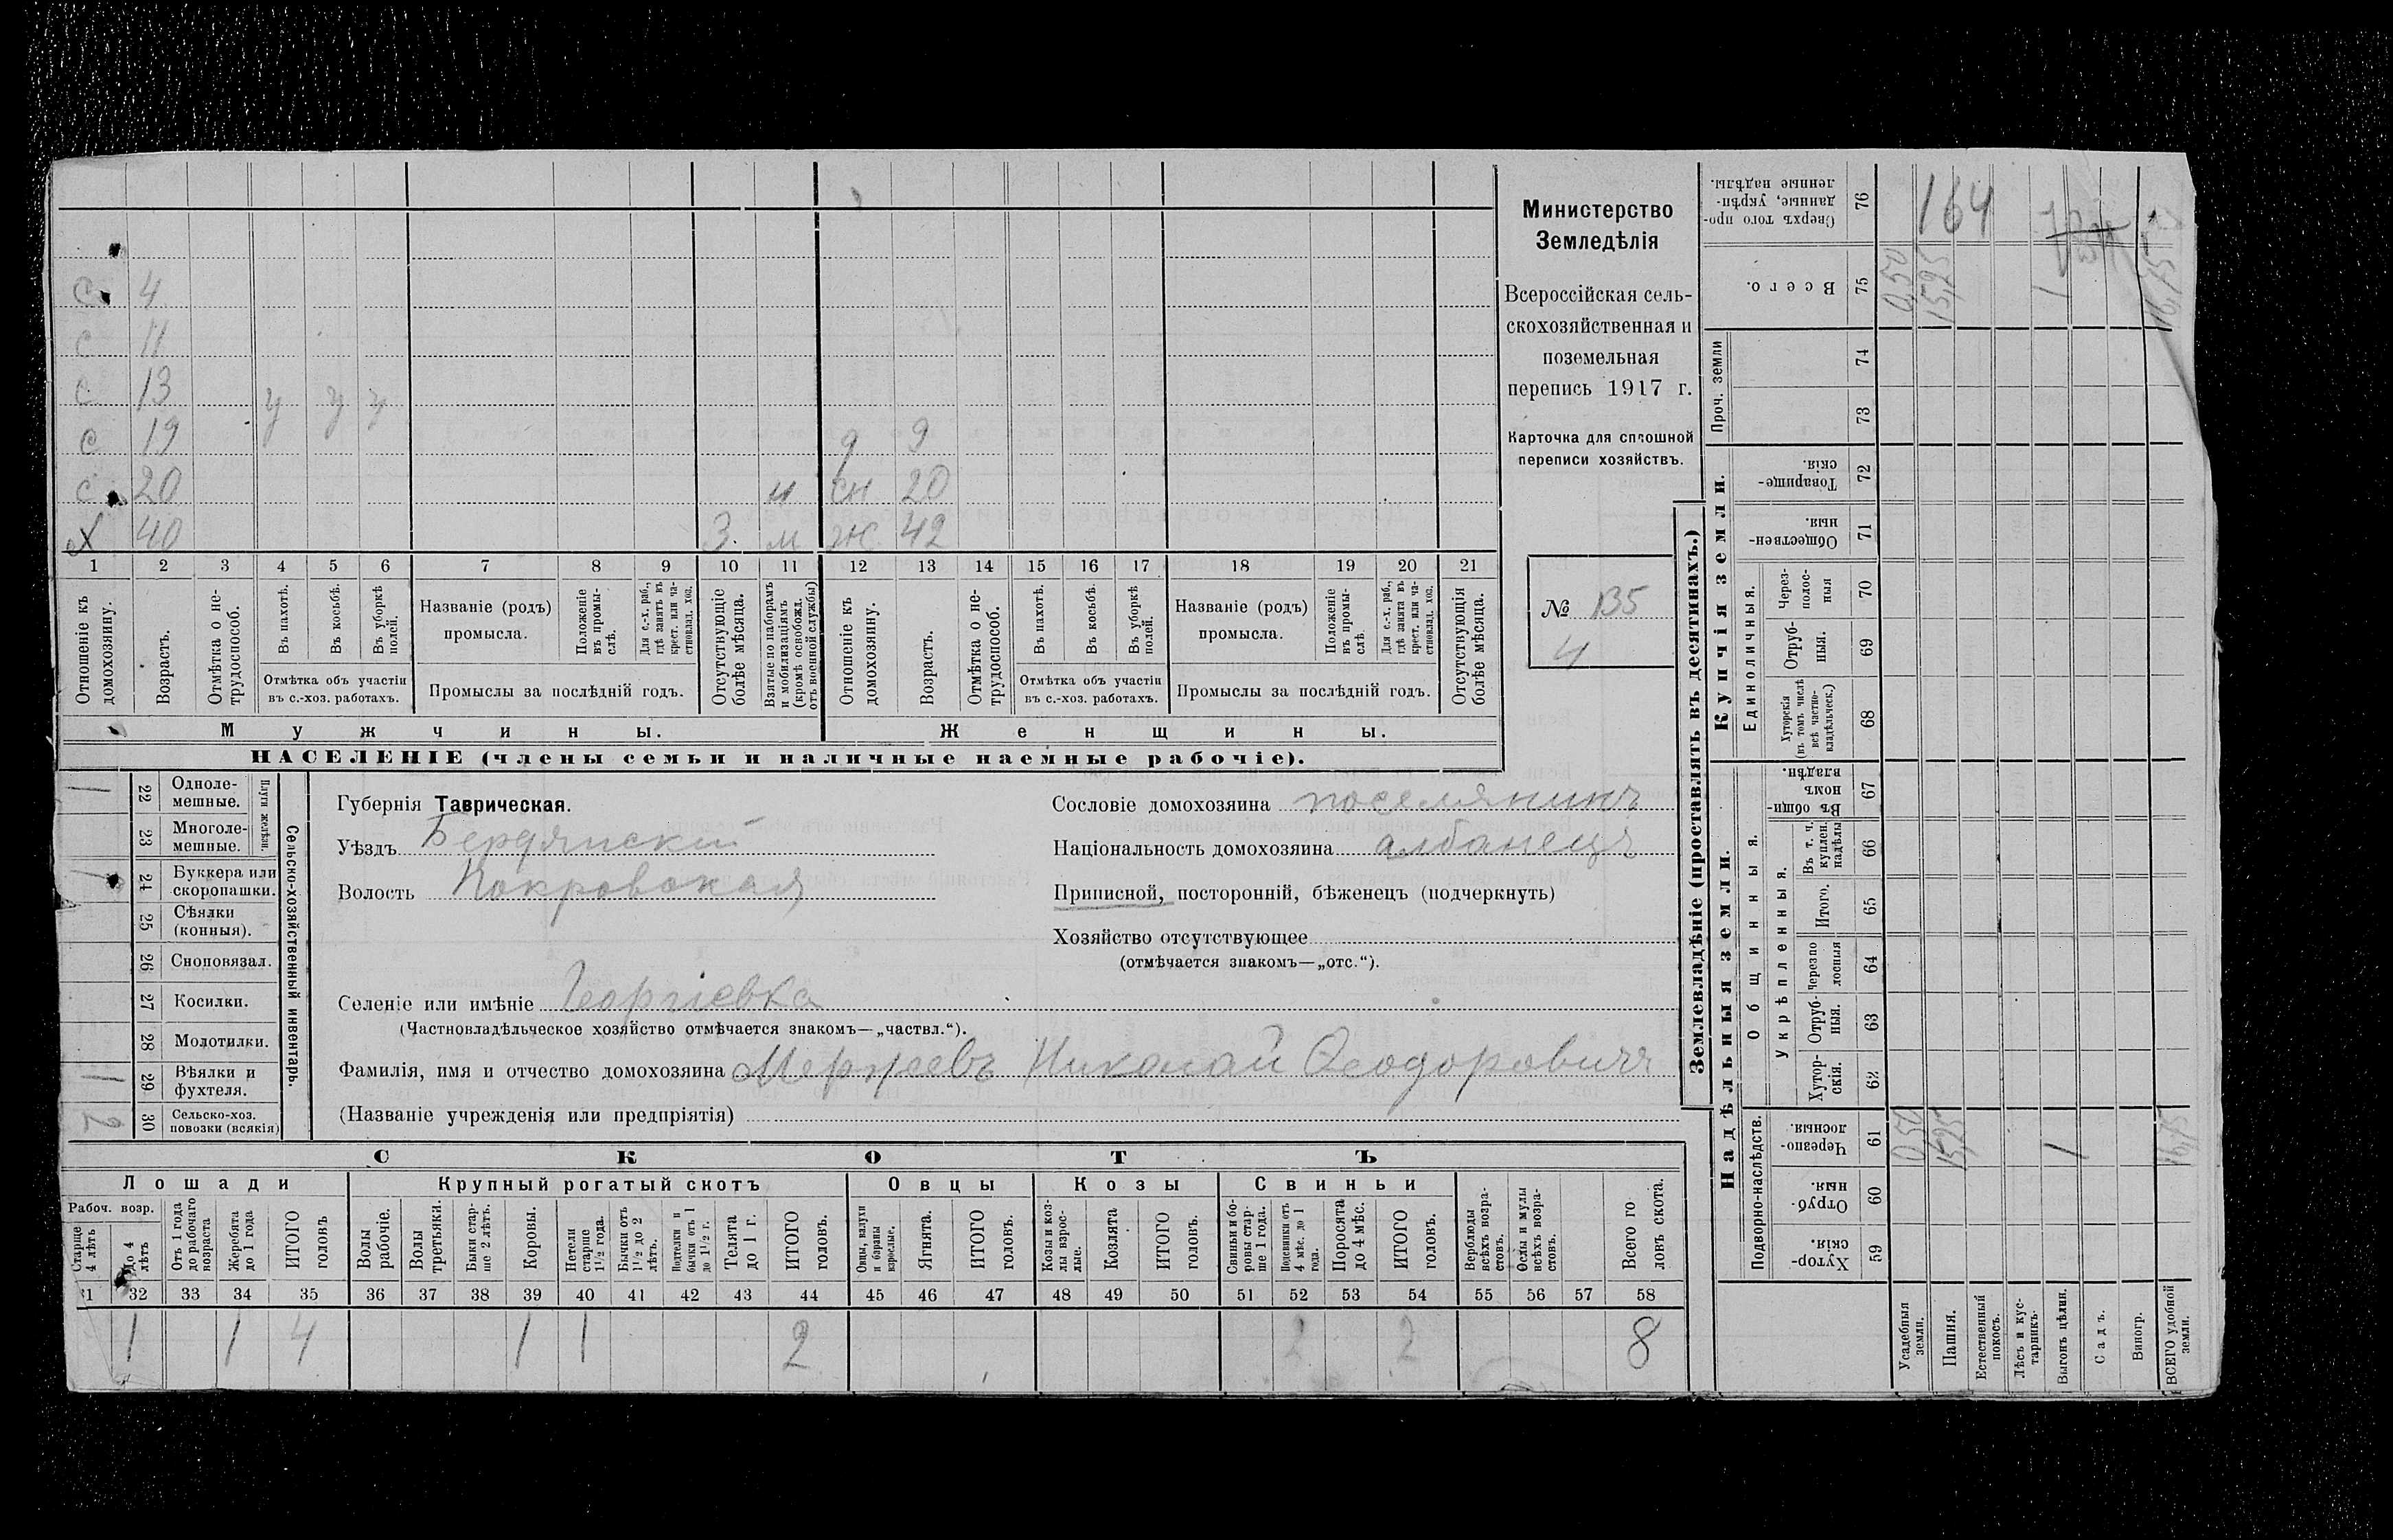 Министерство
Земледѣлія
Всероссійская сель-
скохозяйственная и
поземельная
перепись 1917 г.
Карточка для сплошной
переписи хозяйствъ.
№ 135
4
с 4
с 11
с 13
с 19 у у у д 9
с 20 сн 20
х 40 3. м ж 42
1 2 3 4 5 6 7 8 9 10 11 12 13 14 15 16 17 18 19 20 21
Отношеніе къ домохозяину.
Возрастъ.
Отмѣтка о не-трудоспособ.
Въ пахотѣ.
Въ косьбѣ.
Въ уборкѣ полей.
Отмѣтка объ участіи въ с.-хоз. работахъ.
Названіе (родъ) промысла.
Положеніе въ промы-слѣ.
Для с.-х. раб., гдѣ занятъ въ крест. или ча-стновлад. хоз.
Промыслы за послѣдній годъ.
Отсутствующіе болѣе мѣсяца.
Взятые по наборамъ и мобилизаціямъ (кромѣ освобожд. отъ военной службы)
Отношеніе къ домохозяину.
Возрастъ.
Отмѣтка о не-трудоспособ.
Въ пахотѣ.
Въ косьбѣ.
Въ уборкѣ полей.
Отмѣтка объ участіи въ с.-хоз. работахъ.
Названіе (родъ) промысла.
Положеніе въ промы-слѣ.
Для с.-х. раб., гдѣ занята въ крест. или ча-стновлад. хоз.
Промыслы за послѣдній годъ.
Отсутствующія болѣе мѣсяца.
Мужчины. Женщины.
НАСЕЛЕНІЕ (члены семьи и наличные наемные рабочіе).
Сельско-хозяйственный инвентарь.
Плуги желѣзн.
22 Одноле-мешные. 1
23 Многоле-мешные.
24 Буккера или скоропашки.
25 Сѣялки (конныя).
26 Сноповязал.
27 Косилки.
28 Молотилки.
29 Вѣялки и фухтеля. 1
30 Сельско-хоз. повозки (всякія) 2
Губернія Таврическая.
Уѣздъ Бердянский
Волость Покровская
Сословіе домохозяина поселянинъ
Національность домохозяина албанецъ
Приписной, посторонній, бѣженецъ (подчеркнуть)
Хозяйство отсутствующее
(отмѣчается знакомъ—„отс.“).
Селеніе или имѣніе Георгіевка
(Частновладѣльческое хозяйство отмѣчается знакомъ—„частвл.“).
Фамилія, имя и отчество домохозяина Мержеевъ Николай Ѳеодоровичъ
(Названіе учрежденія или предпріятія)
СКОТЪ
Лошади Крупный рогатый скотъ Овцы Козы Свиньи
Рабоч. возр.
Старше 4 лѣтъ
До 4 лѣтъ
Отъ 1 года до рабочаго возраста
Жеребята до 1 года
ИТОГО головъ
Волы рабочіе.
Волы третьяки.
Быки стар-ше 2 лѣтъ.
Коровы.
Нетели старше 1½ года.
Бычки отъ 1½ до 2 лѣтъ.
Подтелки и бычки отъ 1 до 1½ г.
Телята до 1 г.
ИТОГО головъ.
Овцы, валухи и бараны взрослые.
Ягнята.
ИТОГО головъ.
Козы и коз-лы взрос-лые.
Козлята
ИТОГО головъ.
Свиньи и бо-ровы стар-ше 1 года.
Подсвинки отъ 4 мѣс. до 1 года.
Поросята до 4 мѣс.
ИТОГО головъ.
Верблюды всѣхъ возра-стовъ.
Ослы и мулы всѣхъ возра-стовъ.
Всего го ловъ скота.
31 32 33 34 35 36 37 38 39 40 41 42 43 44 45 46 47 48 49 50 51 52 53 54 55 56 57 58
1 1 4 1 1 2 2 2 8
Землевладѣніе (проставлять въ десятинахъ.)
Купчія земли.
Надѣльныя земли.
Сверхъ того про-данные, укрѣп-ленные надѣлы. 76 164
Всего. 75 0,50 15,25 1 16,75
Проч. земли 74 73
Товарище-скія. 72
Обществен-ныя. 71
Единоличныя.
Через-полос-ныя 70
Отруб-ныя. 69
Хуторскія (въ томъ числѣ всѣ частно-владѣльческ.) 68
Общинныя.
Въ общи-номъ владѣн. 67
Укрѣпленныя.
Въ т. ч. куплен. надѣлы 66
Итого. 65
Черезпо лосныя 64
Отруб-ныя. 63
Хутор-скія. 62
Подворно-наслѣдств.
Черезпо-лосныя. 61 0,50 15,25 1 16,75
Отруб-ныя. 60
Хутор-скія. 59
Усадебныя земли.
Пашня.
Естественный покосъ.
Лѣсъ и кус-тарникъ.
Выгонъ цѣлин.
Садъ.
Виногр.
ВСЕГО удобной земли.